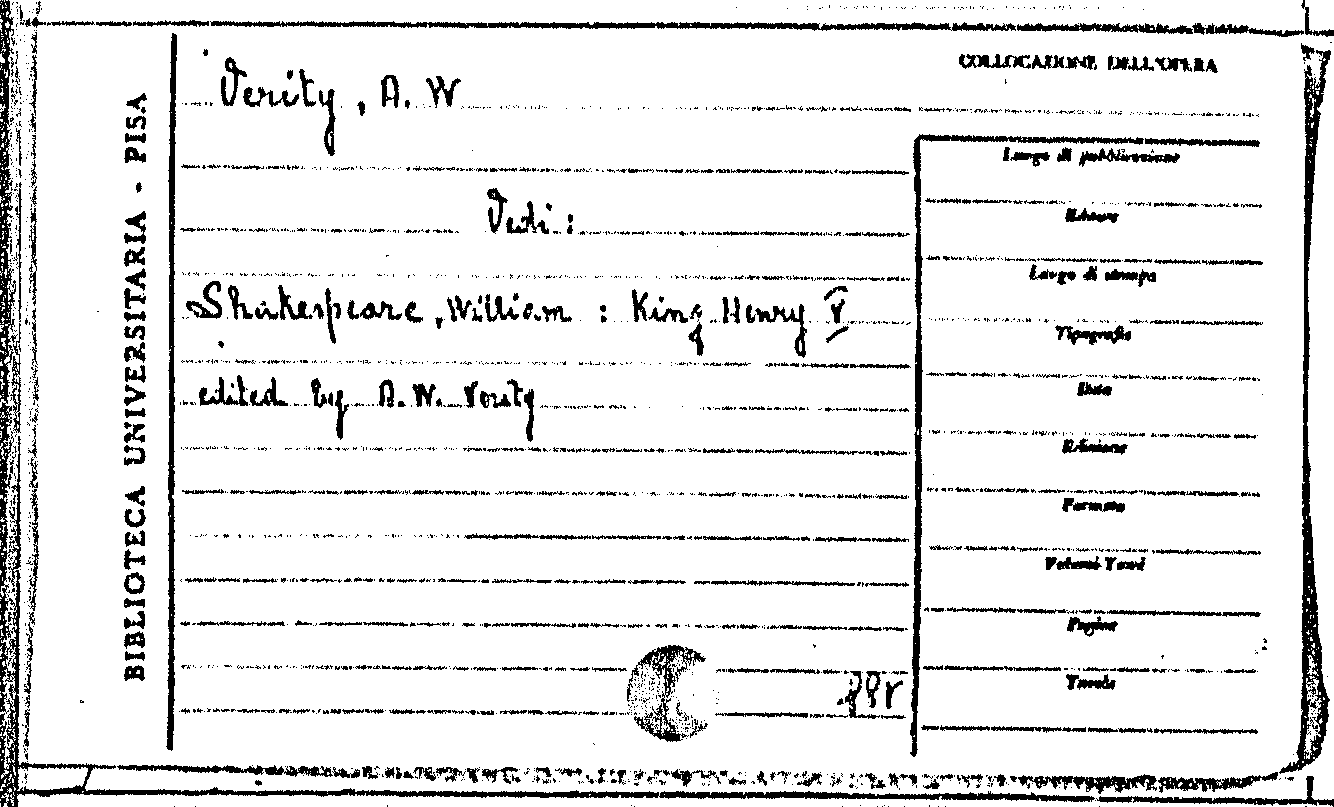 BIBLIOTECA UNIVERSITARIA - PISA
Verity, A. W
Vedi:
Shakespeare, William : King Henry V
edited by A. W. Verity
COLLOCAZIONE DELL'OPERA
Luogo di pubblicazione
Editore
Luogo di stampa
Tipografia
Data
Edizione
Formato
Volumi-Tomi
Pagine
Tavole